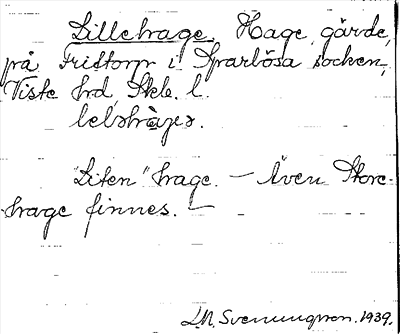 Lillehage. Hage, gärde,
på Fristorp i Sparlösa socken,
Viste hrd, Skb. l.
"Liten" hage. — Även Store-
hage finnes. —
S.M. Svenungsson. 1939.